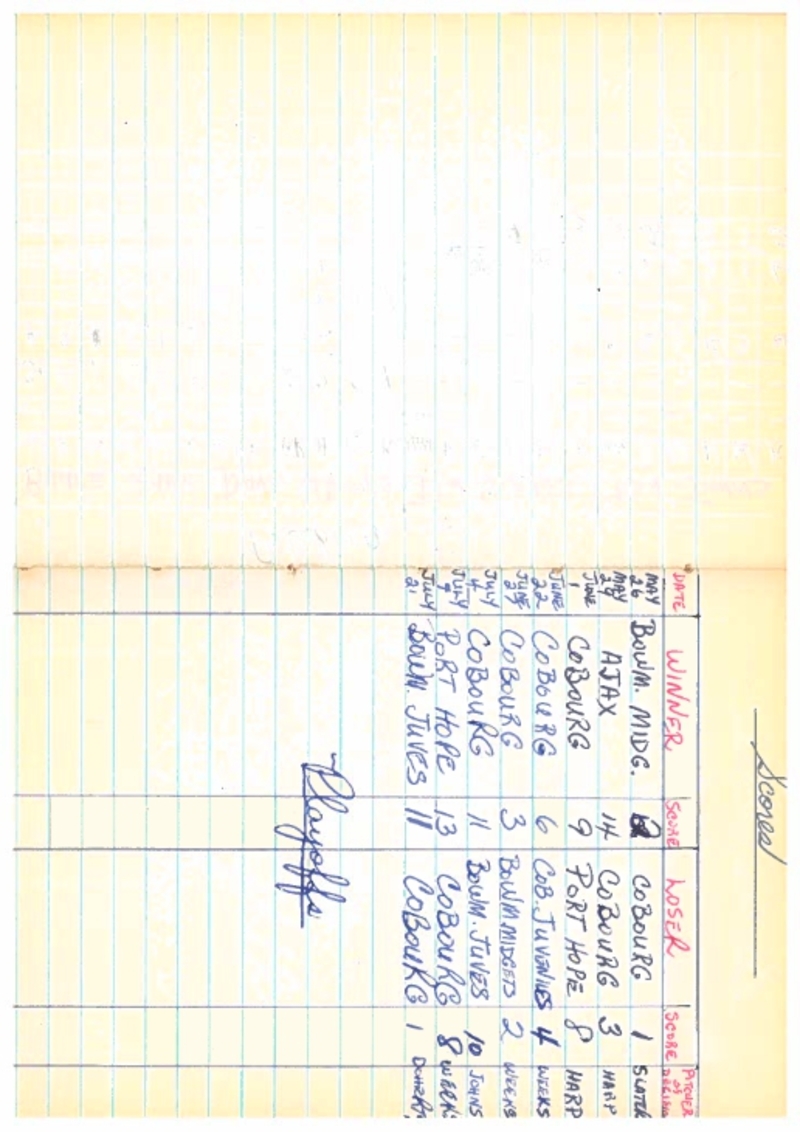 Scores
DATE WINNER SCORE LOSER SCORE PITCHER OF DECISION
MAY 26 BOWM. MIDG. 2 COBOURG 1 SLATER
MAY 29 AJAX 14 COBOURG 3 HARP
JUNE 1 COBOURG 9 PORT HOPE 8 HARP
JUNE 22 COBOURG 6 COB. JUVENILES 4 WEEKS
JUNE COBOURG 3 BOWM MIDGETS 2 WEEKS
JULY 4 COBOURG 11 BOWM. JUVES 10 JOHNS
JULY PORT HOPE 13 COBOURG 8 WEEKS
JULY 21 BOWM. JUVES 11 COBOURG 1
Playoffs